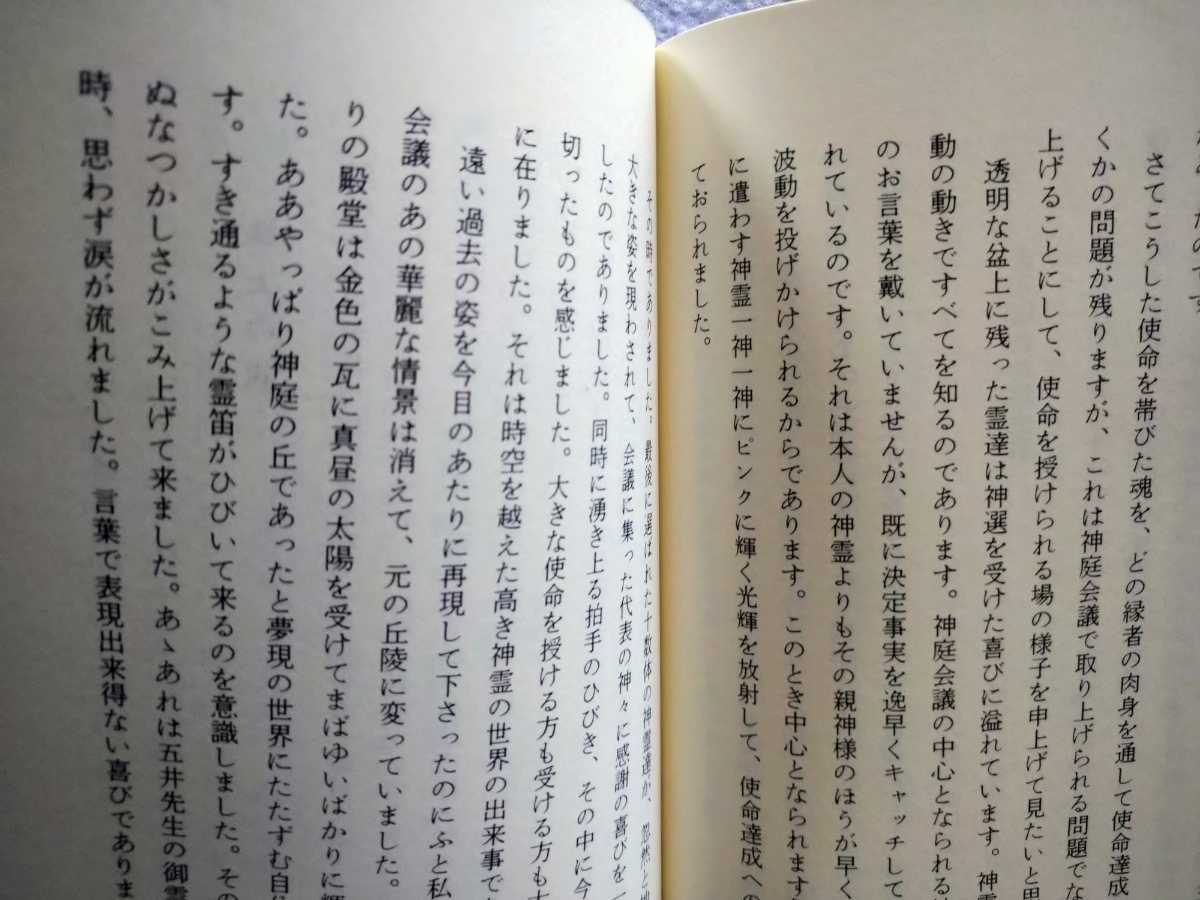 さてこうした使命を帯びた魂を、どの縁者の肉身を通して使命達成
くかの問題が残りますが、これは神庭会議で取り上げられる問題でな
上げることにして、使命を授けられる場の様子を申上げて見たいと思
透明な盆上に残った霊達は神選を受けた喜びに溢れています。神霊
動の動きですべてを知るのであります。神庭会議の中心となられる
のお言葉を戴いていませんが、既に決定事実を逸早くキャッチして
れているのです。それは本人の神霊よりもその親神様のほうが早く
波動を投げかけられるからであります。このとき中心となられます
に遣わす神霊一神一神にピンクに輝く光輝を放射して、使命達成への
ておられました。
その時でありました。最後に選ばれた十数体の神霊達が、忽然と
大きな姿を現わされて、会議に集った代表の神々に感謝の喜びを
したのでありました。同時に湧き上る拍手のひびき、その中に今
切ったものを感じました。大きな使命を授ける方も受ける方も
に在りました。それは時空を越えた高き神霊の世界の出来事で
遠い過去の姿を今目のあたりに再現して下さったのにふと私
会議のあの華麗な情景は消えて、元の丘陵に変っていました。
りの殿堂は金色の瓦に真昼の太陽を受けてまばゆいばかりに輝
た。ああやっぱり神庭の丘であったと夢現の世界にたたずむ自分
す。すき通るような霊笛がひびいて来るのを意識しました。その
ぬなつかしさがこみ上げて来ました。あゝあれは五井先生の御霊
時、思わず涙が流れました。言葉で表現出来得ない喜びでありま